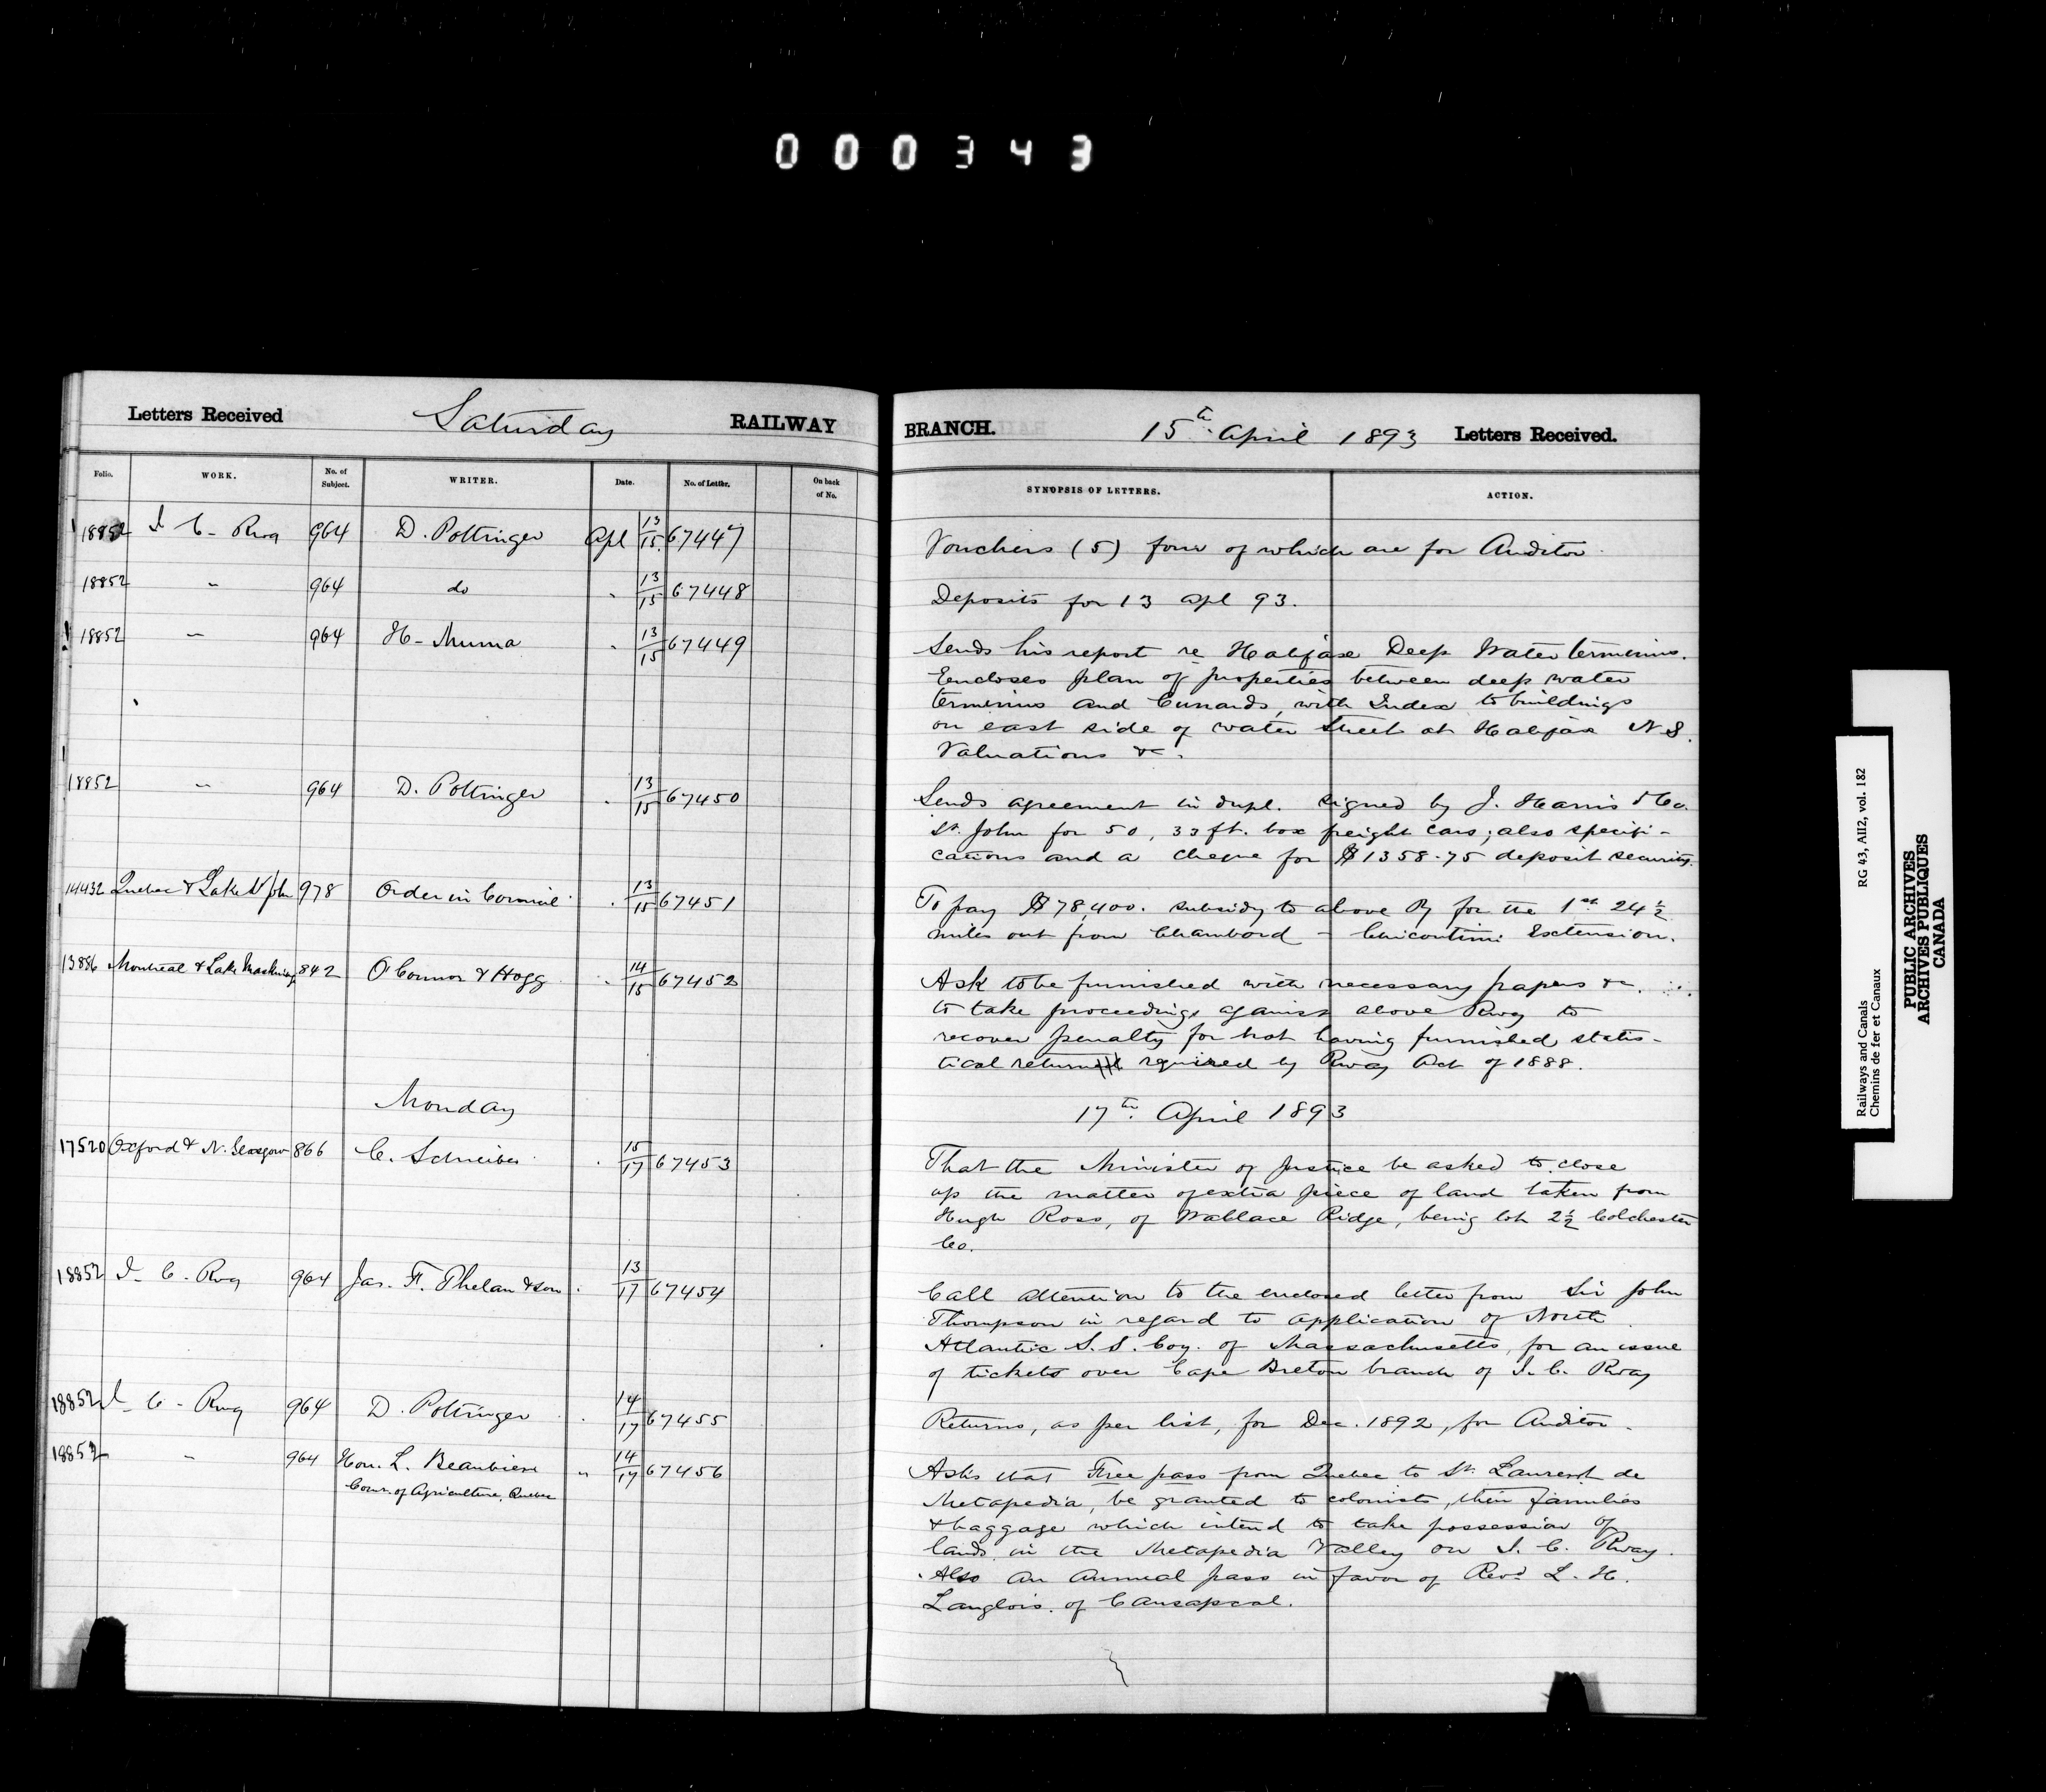 000343
Letters Received Saturday RAILWAY BRANCH. 15th April 1893 Letters Received.
Folio. WORK. No. of Subject. WRITER. Date. No. of Letter. On back of No. SYNOPSIS OF LETTERS. ACTION.
18852 I. C. Rwy 964 D. Pottinger Apl 13/15 67447 Vouchers (5) four of which are for Auditor.
18852 " 964 do " 13/15 67448 Deposits for 13 Apl 93.
18852 " 964 H. Mumma " 13/15 67449 Sends his report re Halifax Deep Water terminus.
Encloses plan of properties between deep water
terminus and Cunards, with Index to buildings
on east side of Water Street at Halifax N.S.
Valuations &c.
18852 " 964 D. Pottinger " 13/15 67450 Sends agreement in dupl. signed by J. Harris & Co.
St. John for 50, 33 ft. box freight cars; also specifi-
cations and a cheque for $1358.75 deposit security.
14432 Quebec & Lake St John 978 Order in Council " 13/15 67451 To pay $78,400. subsidy to above Ry for the 1st 24½
miles out from Chambord - Chicoutimi Extension.
13886 Montreal & Lake Maskinongé 842 O'Connor & Hogg " 14/15 67452 Ask to be furnished with necessary papers &c.
to take proceedings against above Rwy to
recover penalty for not having furnished statis-
tical return required by Rway Act of 1888.
Monday 17th April 1893
17520 Oxford & N. Glasgow 866 C. Schreiber " 15/17 67453 That the Minister of Justice be asked to close
up the matter of extra piece of land taken from
Hugh Ross, of Wallace Ridge, being lot 2½ Colchester
Co.
18852 I. C. Rwy 964 Jas. F. Phelan & son " 13/17 67454 Call attention to the enclosed letter from Sir John
Thompson in regard to application of North
Atlantic S.S. Coy. of Massachusetts, for an issue
of tickets over Cape Breton branch of I. C. Rway
18852 I. C. Rwy 964 D. Pottinger " 14/17 67455 Returns, as per list, for Dec. 1892, for Auditor.
18852 " 964 Hon. L. Beaubien " 14/17 67456 Asks that Free pass from Quebec to St. Laurent de
Comr. of Agriculture, Quebec
Metapedia, be granted to colonists, their families
& baggage which intend to take possession of
lands in the Metapedia Valley on I. C. Rway.
Also an annual pass in favor of Revd L. H.
Langlois of Causapscal.
Railways and Canals RG 43, AII2, vol. 182
Chemins de fer et Canaux
PUBLIC ARCHIVES
ARCHIVES PUBLIQUES
CANADA